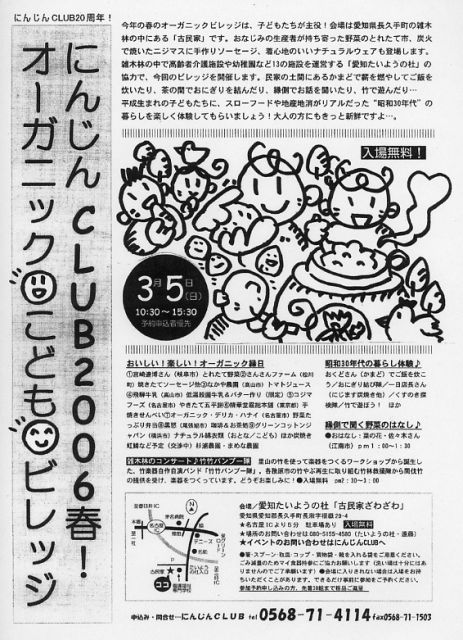 にんじんCLUB20周年！
にんじんCLUB2006春！
オーガニックこどもビレッジ
今年の春のオーガニックビレッジは、子どもたちが主役！会場は愛知県長久手町の雑木
林の中にある「古民家」です。おなじみの生産者が持ち寄った野菜のとれたて市、炭火
で焼いたニジマスに手作りソーセージ、着心地のいいナチュラルウェアも登場します。
雑木林の中で高齢者介護施設や幼稚園など13の施設を運営する「愛知たいようの杜」の
協力で、今回のビレッジを開催します。民家の土間にあるかまどで薪を燃やしてご飯を
炊いたり、茶の間でおにぎりを結んだり、縁側でお話を聞いたり、竹で遊んだり…
平成生まれの子どもたちに、スローフードや地産地消がリアルだった“昭和30年代”の
暮らしを楽しく体験してもらいましょう！大人の方にもきっと新鮮ですよ…。
入場無料！
3月5日(日)
10:30～15:30
予約申込者優先
おいしい！楽しい！オーガニック縁日
①宮崎達博さん（岐阜市）とれたて野菜②さんさんファーム（松川
町）焼きたてソーセージ他③なかや農園（高山市）トマトジュース
④飛騨牛乳（高山市）低温殺菌牛乳＆バター作り（限定）⑤コジマ
フーズ（名古屋市）やきたて五平餅⑥精華堂霰総本舗（東京都）手
焼きせんべい⑦オーガニック・デリカ・ハナイ（名古屋市）野菜た
っぷり弁当⑧
珈琲＆お茶処⑨グリーンコットンジ
ャパン（横浜市）ナチュラル綿衣類（おとな／こども）ほか炭焼き
紅鱒など予定（交渉中）杉浦農園・まめな農園
昭和30年代の暮らし体験♪
おくどさん（かまど）でご飯を炊こ
う／おにぎり結び隊／一日店長さん
（にします炭焼き他）／くすのき探
検隊／竹で遊ぼう！ ほか
縁側で聞く野菜のなはし♪
●おはなし：菜の花・佐々木さん
（江南市）pm1：00～1：30
雑木林のコンサート♪竹竹バンブー隊。
里山の竹を使って楽器をつくるワークショップから誕生し
た、竹楽器自作自演バンド「竹竹バンブー隊」。各務原市の竹やぶ再生に取り組む竹林救援隊から間伐竹
の提供を受け、楽器をつくっています。どうぞお楽しみに！●入場無料 pm2：10～3：00
会場／愛知たいようの杜「古民家ざわざわ」
愛知県愛知郡長久手町長湫字根嶽29-4
★名古屋ICより5分 駐車場あり 入場無料
★場所のお問い合わせは080-5155-4580（たいようの杜・遠藤）
★イベントのお問い合わせはにんじんCLUBへ
N
ココ
古民家
申込み・問合せ…にんじんCLUB tel 0568-71-4114 fax0568-71-1503